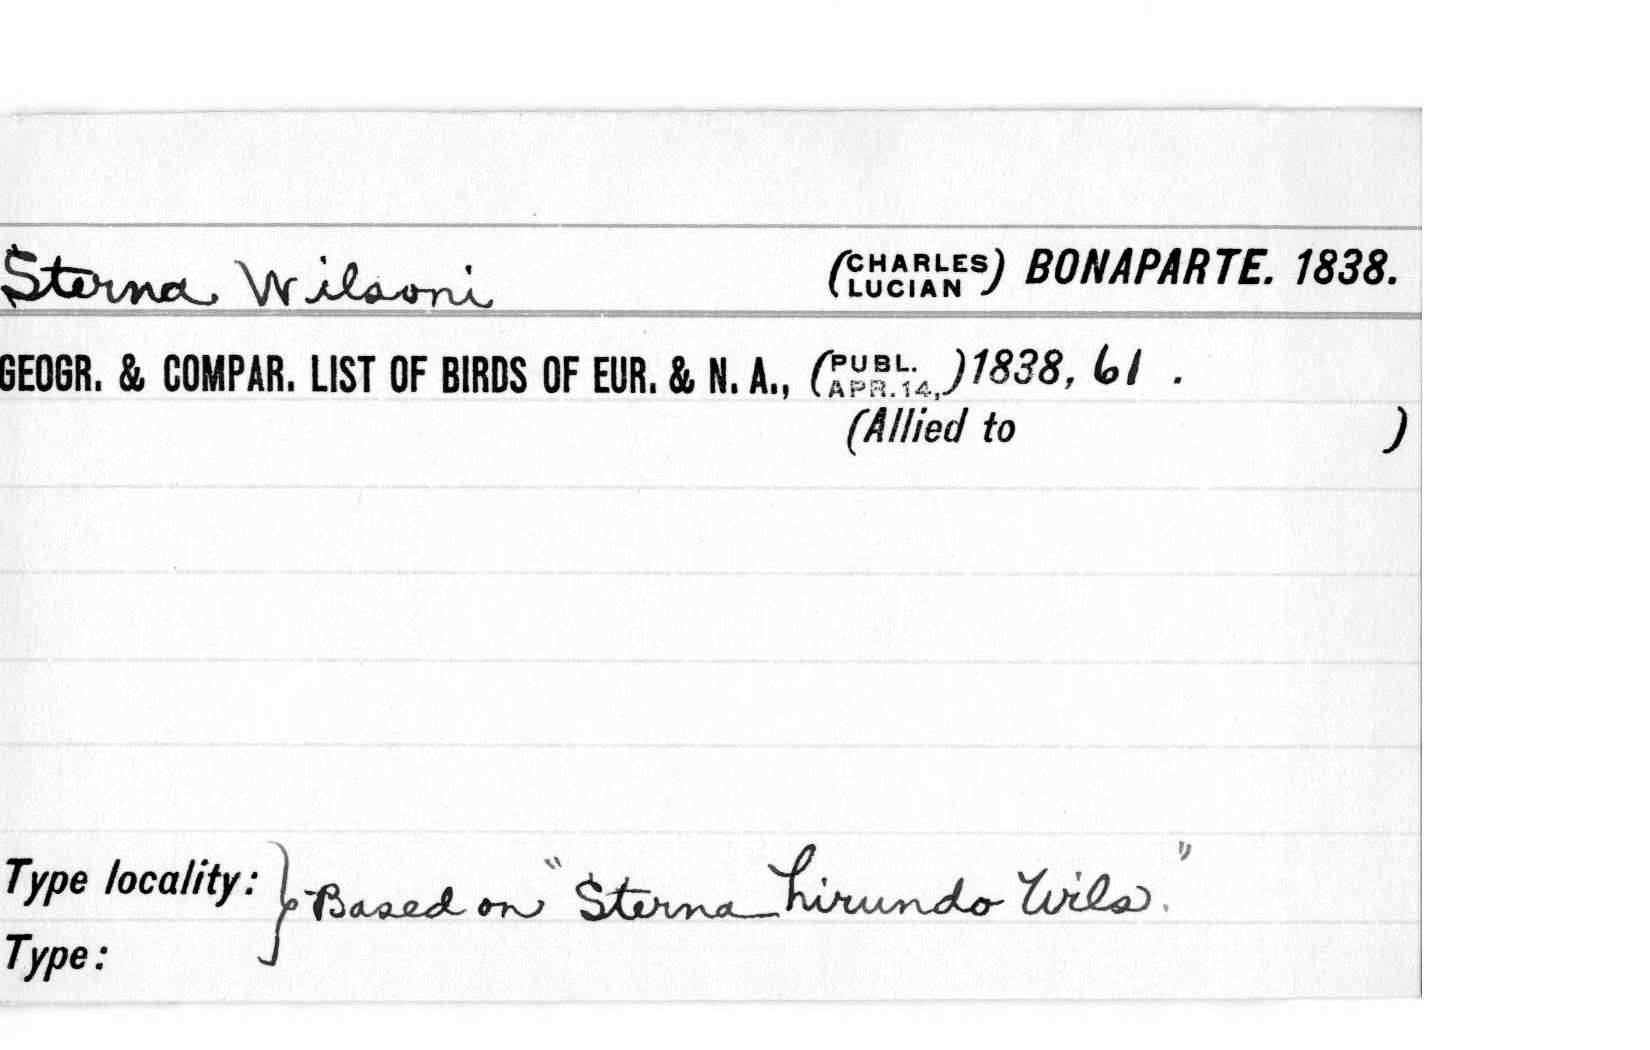 Sterna Wilsoni (CHARLES LUCIAN) BONAPARTE. 1838.
GEOGR. & COMPAR. LIST OF BIRDS OF EUR. & N. A., (PUBL. APR. 14,) 1838, 61 .
(Allied to )
Type locality: } Based on "Sterna hirundo Wils."
Type: